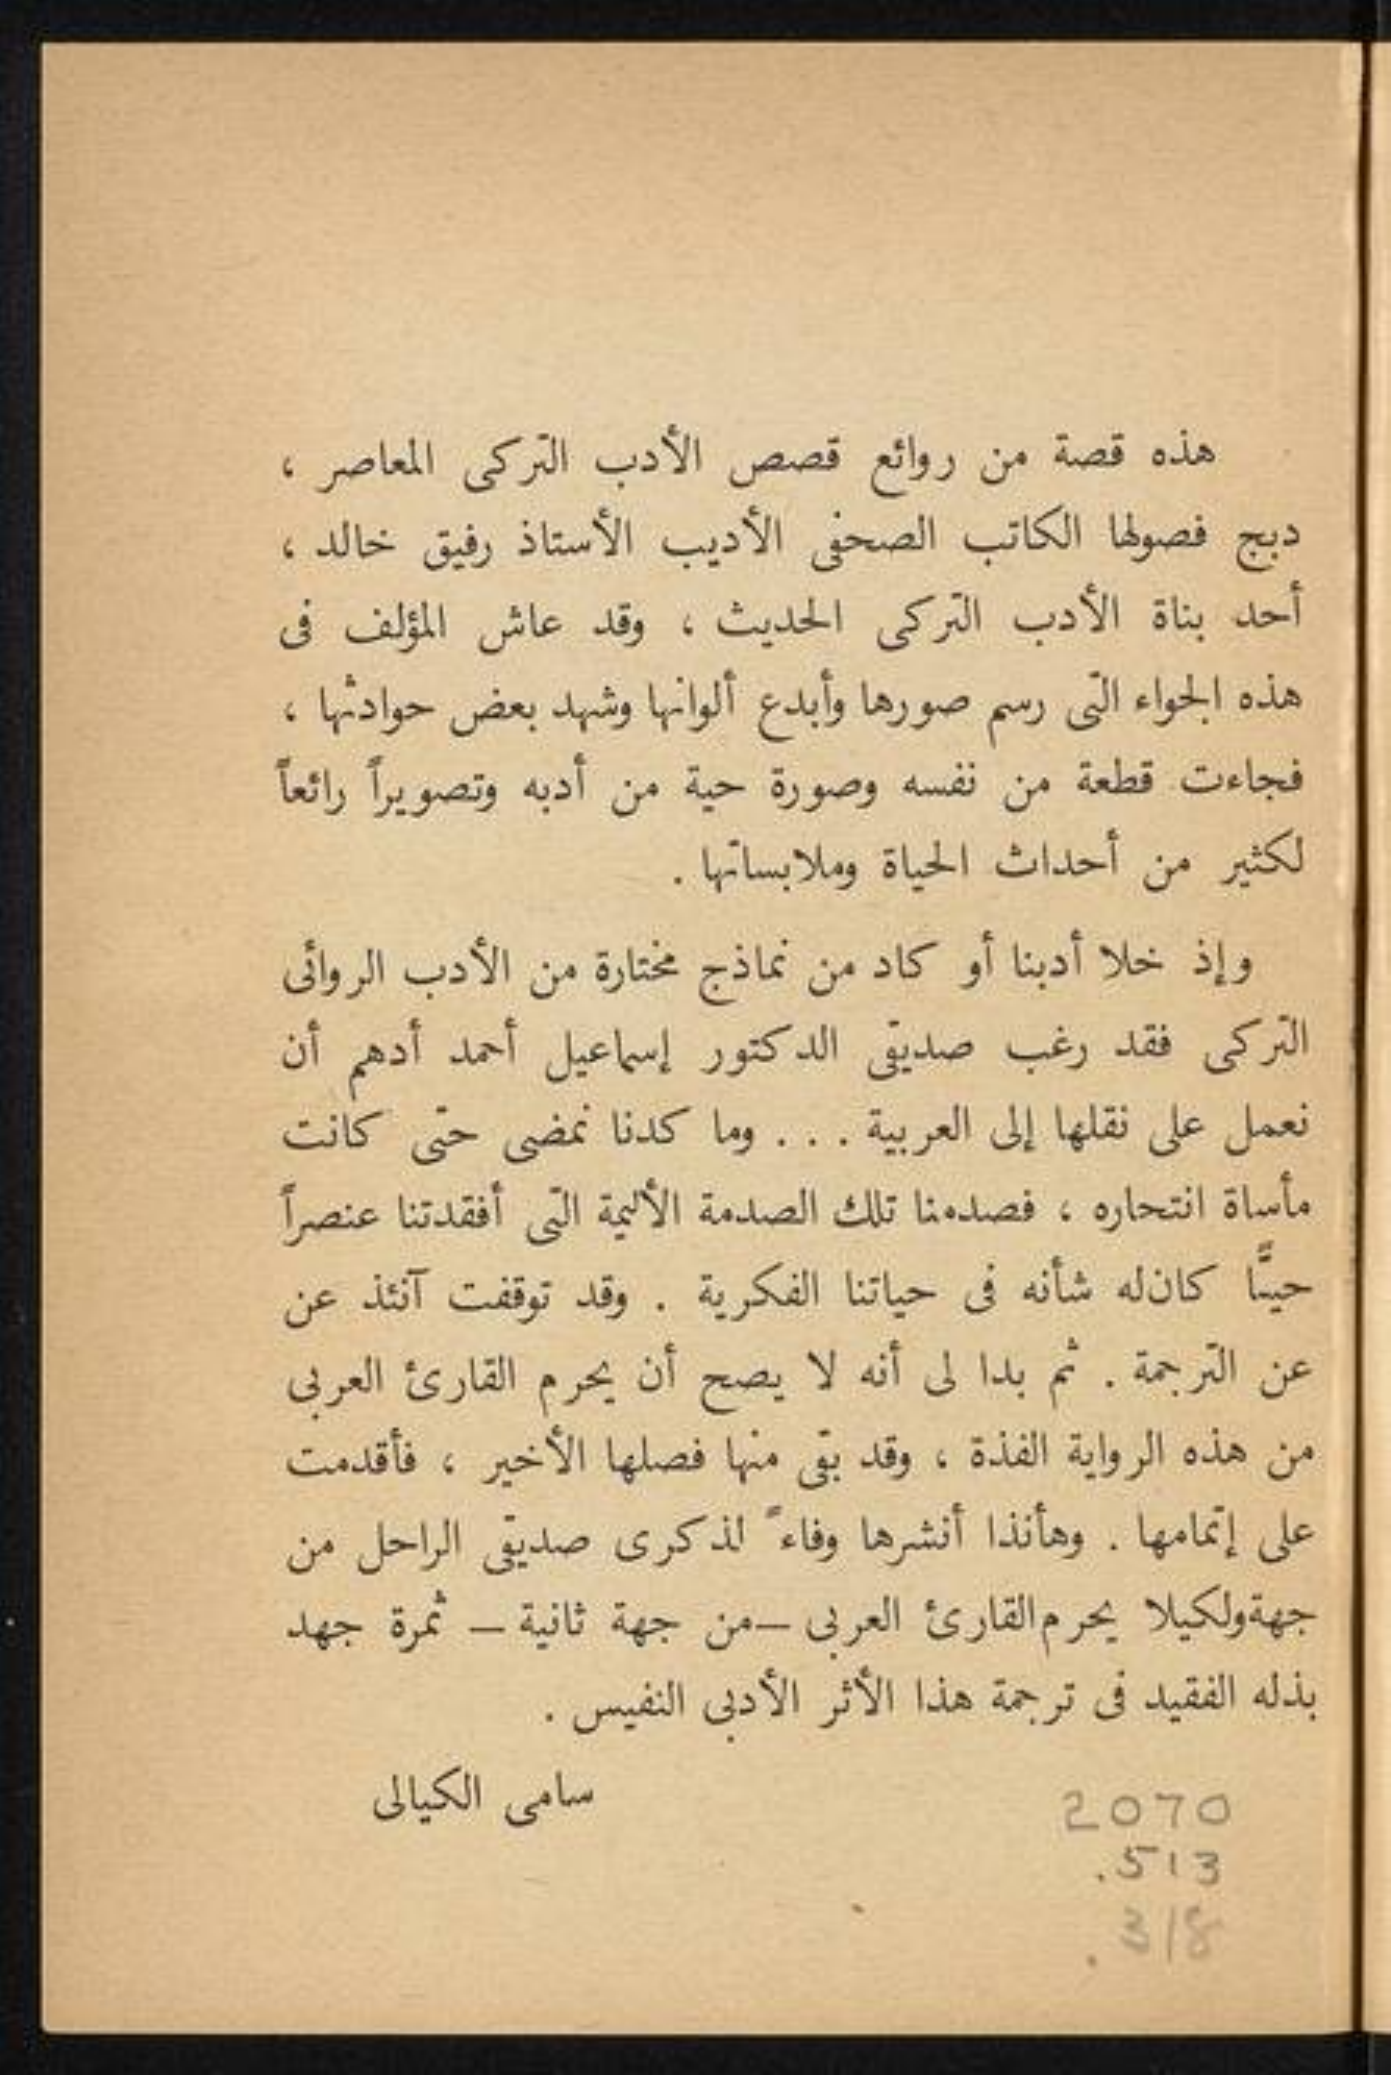 هذه قصة من روائع قصص الأدب التركى المعاصر ،
دبج فصولها الكاتب الصحفى الأديب الأستاذ رفيق خالد ،
أحد بناة الأدب التركى الحديث ، وقد عاش المؤلف فى
هذه الجواء التى رسم صورها وأبدع ألوانها وشهد بعض حوادثها ،
فجاءت قطعة من نفسه وصورة حية من أدبه وتصويراً رائعاً
لكثير من أحداث الحياة وملابساتها .
وإذ خلا أدبنا أو كاد من نماذج مختارة من الأدب الروائى
التركى فقد رغب صديقى الدكتور إسماعيل أحمد أدهم أن
نعمل على نقلها إلى العربية . . . وما كدنا نمضى حتى كانت
مأساة انتحاره ، فصدمنا تلك الصدمة الأليمة التى أفقدتنا عنصراً
حيًّا كان له شأنه فى حياتنا الفكرية . وقد توقفت آنئذ عن
عن الترجمة . ثم بدا لى أنه لا يصح أن يحرم القارئ العربى
من هذه الرواية الفذة ، وقد بقى منها فصلها الأخير ، فأقدمت
على إتمامها . وهأنذا أنشرها وفاءً لذكرى صديقى الراحل من
جهة ولكيلا يحرم القارئ العربى – من جهة ثانية – ثمرة جهد
بذله الفقيد فى ترجمة هذا الأثر الأدبى النفيس .
سامى الكيالى
2070
.513
.318